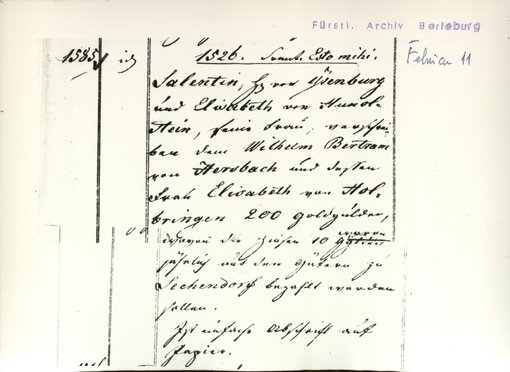 Fürstl. Archiv Berleburg
1585, id 1526. Sonnt. Esto mihi. Februar 11
Salentin, H. von Ysenburg
und Elisabeth von Hunol-
stein, seine Frau, verschrei-
ben dem Wilhelm Bertram
von Hersbach und dessen
Frau Elisabeth von Hol-
bringen 200 goldgülden,
wovon die Zinsen 10
jährlich aus den Gütern zu
Sechendorf bezahlt werden
sollen.
Ist einfache Abschrift auf
Papier.